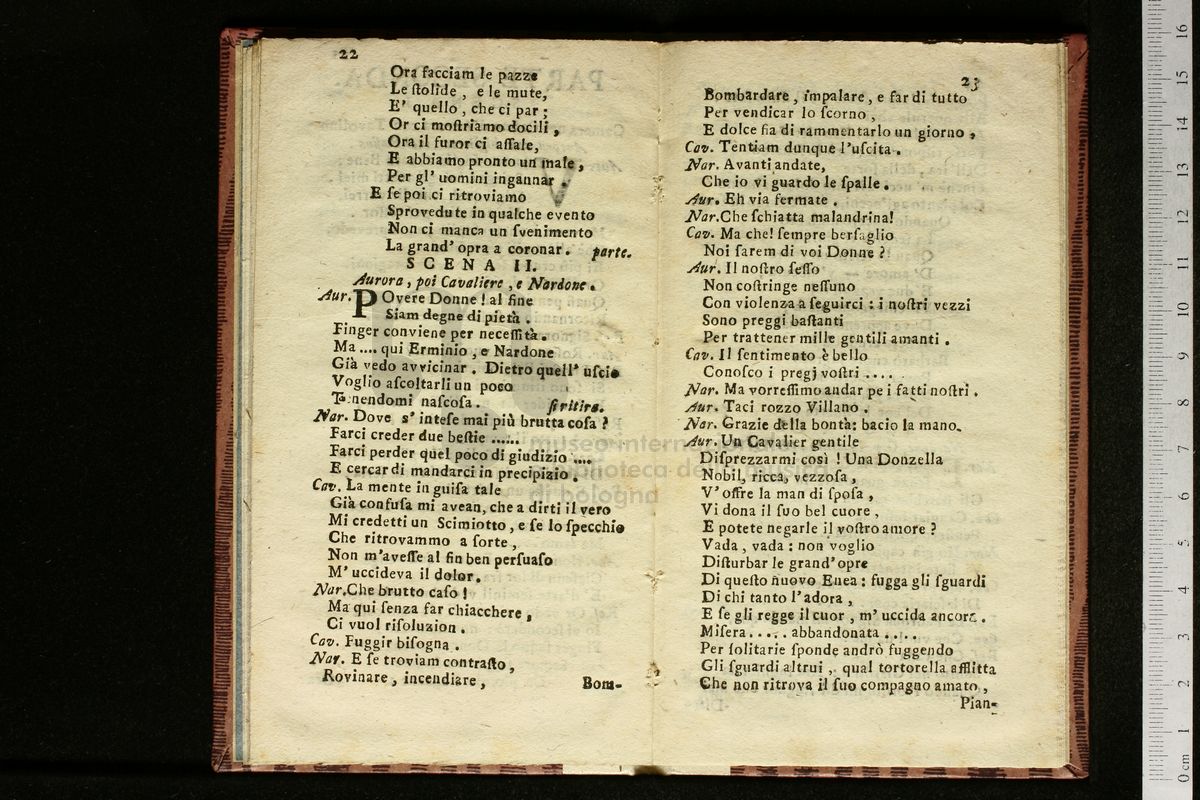 22
Ora facciam le pazze
Le ſtolide , e le mute,
E' quello , che ci par ;
Or ci moſtriamo docili ,
Ora il furor ci aſſale,
E abbiamo pronto un male ,
Per gl' uomini ingannar .
E ſe poi ci ritroviamo
Sprovedute in qualche evento
Non ci manca un ſvenimento
La grand' opra a coronar . parte.
SCENA II.
Aurora , poi Cavaliere , e Nardone .
Aur. POvere Donne ! al fine
Siam degne di pietà .
Finger conviene per neceſſità .
Ma .... qui Erminio , e Nardone
Già vedo avvicinar . Dietro quell' uſcio
Voglio aſcoltarli un poco
Tenendomi naſcoſa . ſi ritira.
Nar. Dove s' inteſe mai più brutta coſa ?
Farci creder due beſtie ......
Farci perder quel poco di giudizio ....
E cercar di mandarci in precipizio .
Cav. La mente in guiſa tale
Già confuſa mi avean, che a dirti il vero
Mi credetti un Scimiotto , e ſe lo ſpecchio
Che ritrovammo a ſorte ,
Non m'aveſſe al fin ben perſuaſo
M' uccideva il dolor.
Nar.Che brutto caſo !
Ma qui ſenza far chiacchere ,
Ci vuol riſoluzion .
Cav. Fuggir biſogna .
Nar. E ſe troviam contraſto ,
Rovinare , incendiare ,
Bom-
23
Bombardare , impalare , e far di tutto
Per vendicar lo ſcorno ,
E dolce fia di rammentarlo un giorno ,
Cav. Tentiam dunque l'uſcita .
Nar. Avanti andate,
Che io vi guardo le ſpalle .
Aur. Eh via fermate .
Nar.Che ſchiatta malandrina!
Cav. Ma che! ſempre berſaglio
Noi ſarem di voi Donne ?
Aur. Il noſtro ſeſſo
Non coſtringe neſſuno
Con violenza a ſeguirci : i noſtri vezzi
Sono preggi baſtanti
Per trattener mille gentili amanti .
Cav. Il ſentimento è bello
Conoſco i pregj voſtri ....
Nar. Ma vorreſſimo andar pe i fatti noſtri .
Aur. Taci rozzo Villano .
Nar. Grazie della bontà: bacio la mano.
Aur. Un Cavalier gentile
Diſprezzarmi così ! Una Donzella
Nobil, ricca, vezzoſa ,
V' offre la man di ſpoſa ,
Vi dona il ſuo bel cuore ,
E potete negarle il voſtro amore ?
Vada , vada : non voglio
Diſturbar le grand' opre
Di queſto nuovo Enea : fugga gli ſguardi
Di chi tanto l'adora ,
E ſe gli regge il cuor , m' uccida ancora .
Miſera..... abbandonata .....
Per ſolitarie ſponde andrò fuggendo
Gli ſguardi altrui , qual tortorella afflitta
Che non ritrova il ſuo compagno amato ,
Pian-
museo internazionale
biblioteca della musica
di bologna
0 cm 1 2 3 4 5 6 7 8 9 10 11 12 13 14 15 16